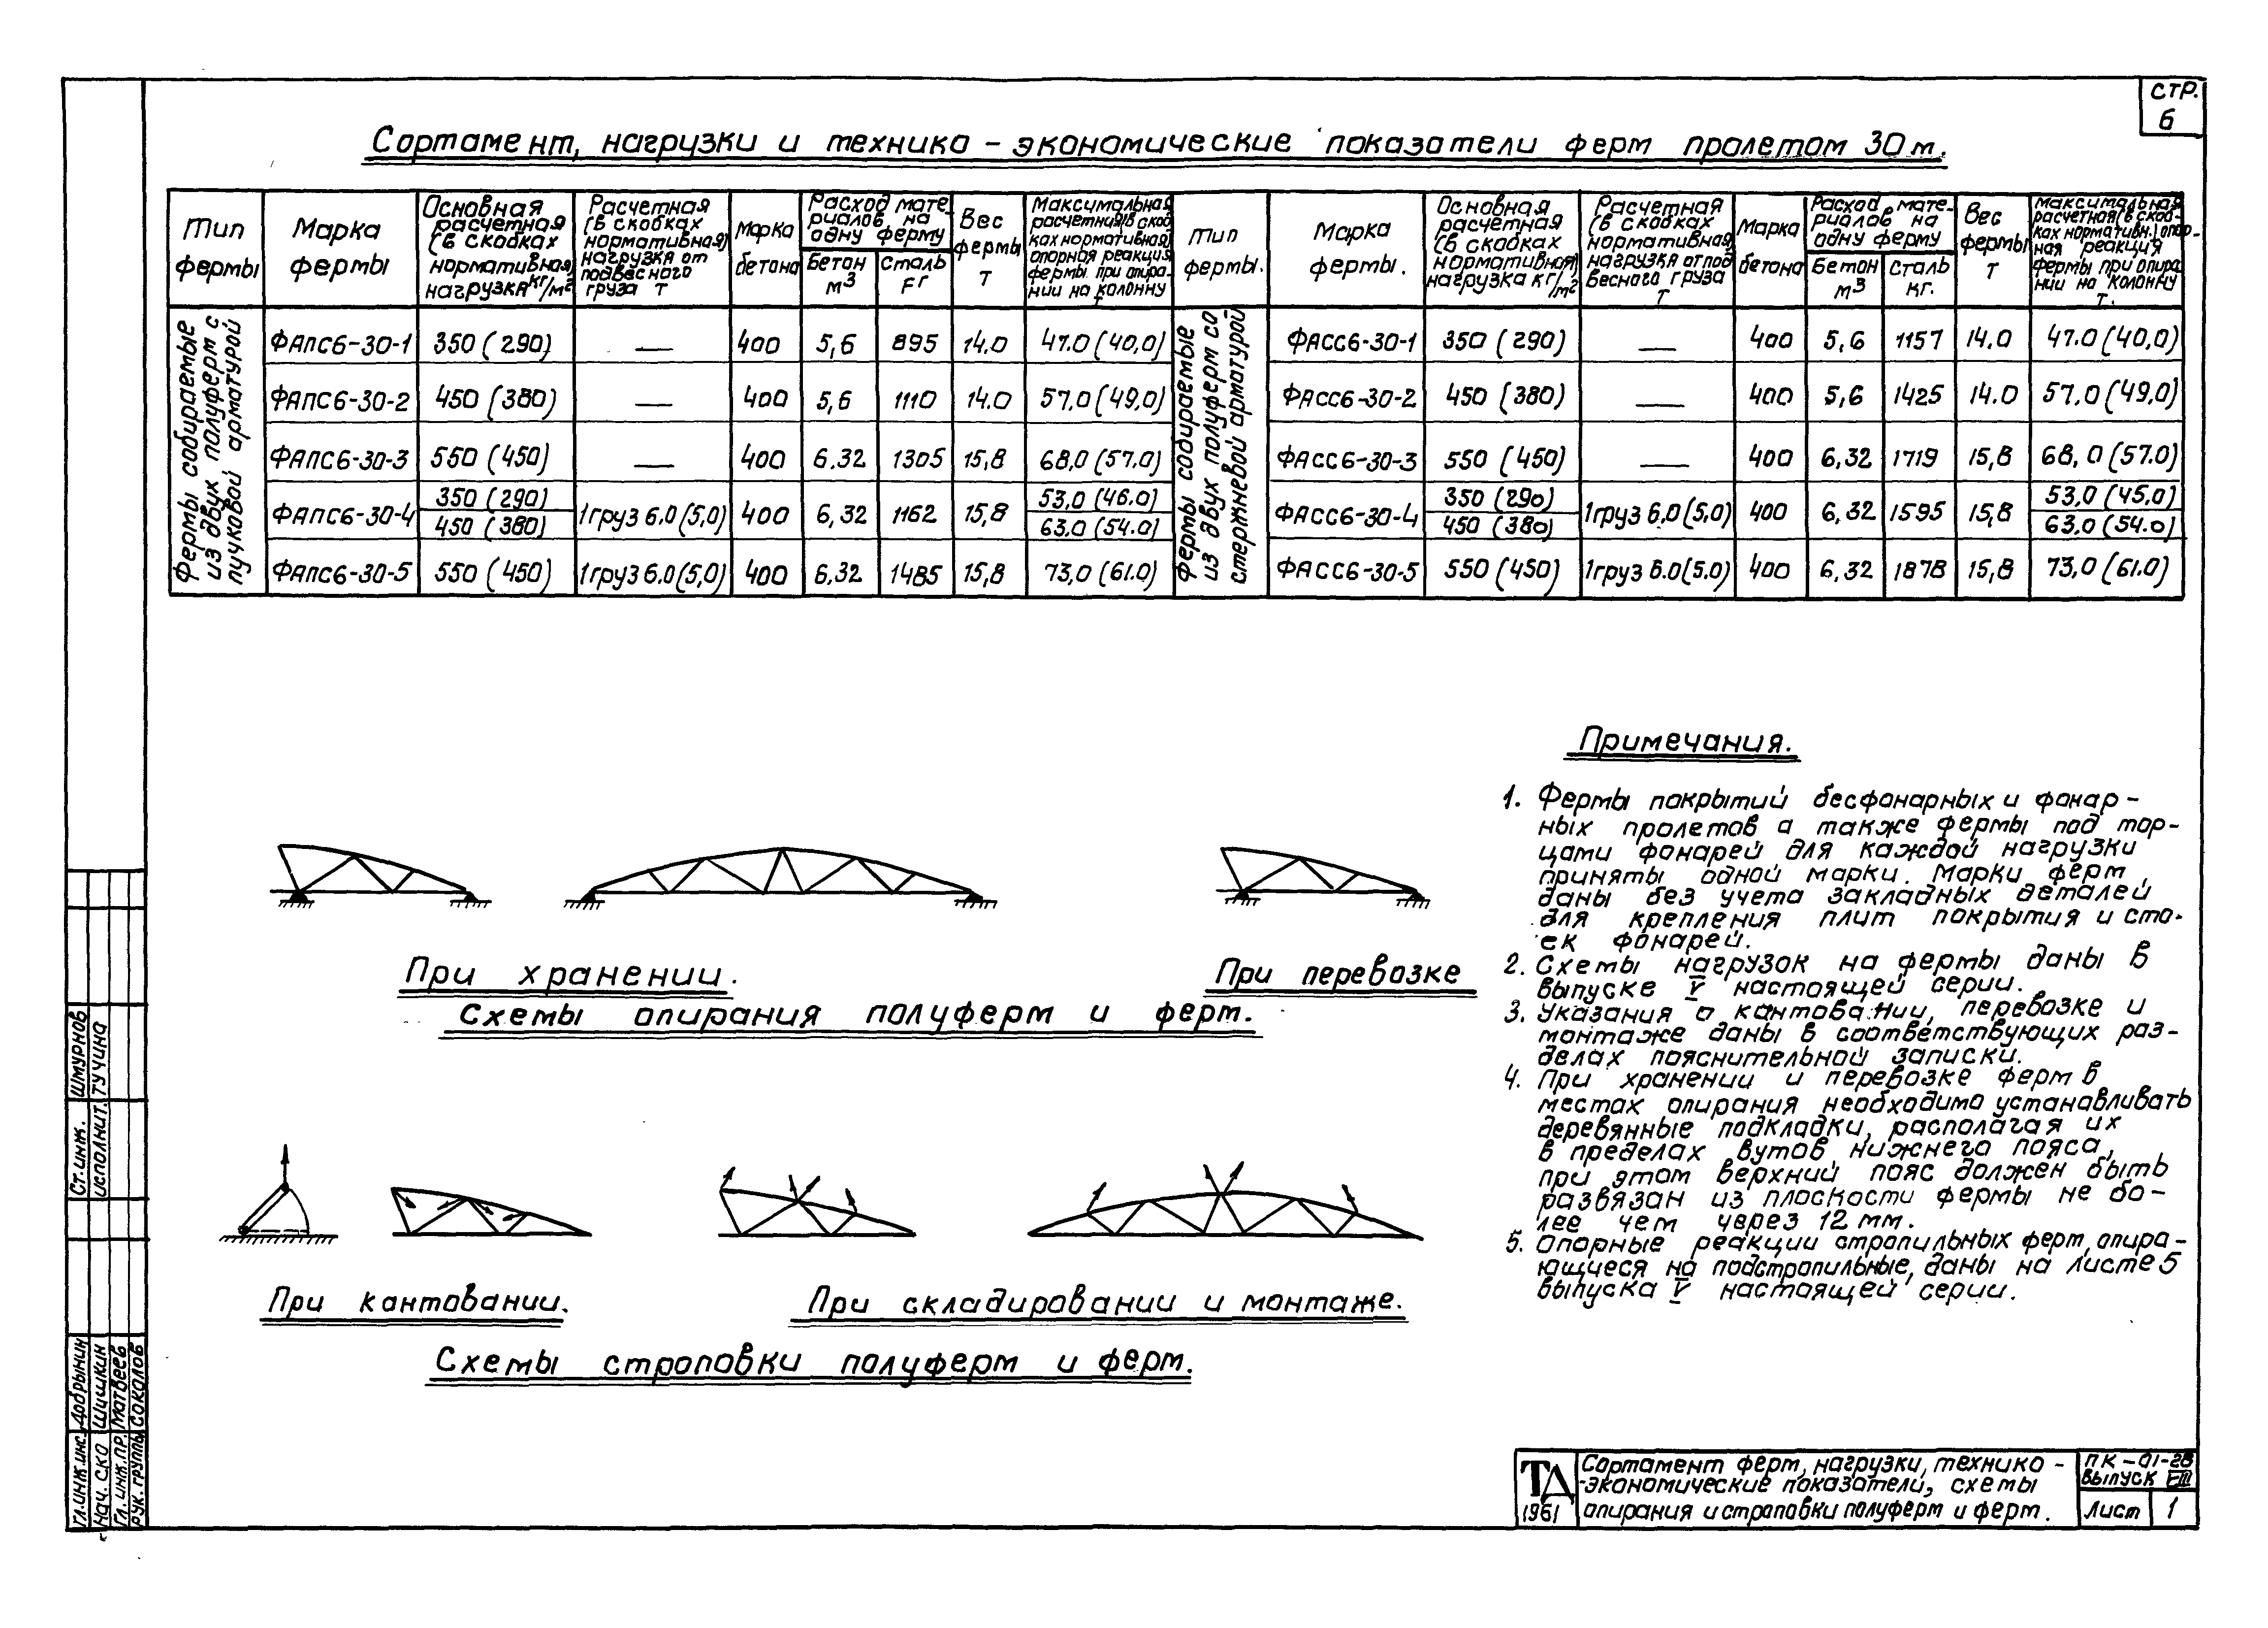 СТР.
6
Сортамент, нагрузки и технико - экономические показатели ферм пролетом 30 м.
Тип фермы
Марка фермы
Основная расчетная (в скобках нормативная) нагрузка кг/м²
Расчетная (в скобках нормативная) нагрузка от подвесного груза т
Марка бетона
Расход материалов на одну ферму
Бетон м3
Сталь кг
Вес фермы т
Максимальная расчетная (в скобках нормативная) опорная реакция фермы при опирании на колонну т
Тип фермы.
Марка фермы.
Основная расчетная (в скобках нормативная) нагрузка кг/м²
Расчетная (в скобках нормативная) нагрузка от подвесного груза т
Марка бетона
Расход материалов на одну ферму
Бетон м3
Сталь кг.
Вес фермы т
Максимальная расчетная (в скобках нормативн.) опорная реакция фермы при опирании на колонну т.
Фермы собираемые из двух полуферм с пучковой арматурой
Фермы собираемые из двух полуферм со стержневой арматурой
ФАПС6-30-1 350 (290) — 400 5,6 895 14.0 47.0 (40,0) ФАСС6-30-1 350 (290) — 400 5,6 1157 14.0 47.0 (40,0)
ФАПС6-30-2 450 (380) — 400 5,6 1110 14.0 57,0 (49,0) ФАСС6-30-2 450 (380) — 400 5,6 1425 14.0 57,0 (49,0)
ФАПС6-30-3 550 (450) — 400 6.32 1305 15,8 68,0 (57.0) ФАСС6-30-3 550 (450) — 400 6,32 1719 15,8 68,0 (57.0)
ФАПС6-30-4 350 (290) 450 (380) 1 груз 6.0 (5,0) 400 6,32 1162 15,8 53,0 (46.0) 63,0 (54.0) ФАСС6-30-4 350 (290) 450 (380) 1 груз 6,0 (5,0) 400 6,32 1595 15,8 53,0 (45,0) 63,0 (54.0)
ФАПС6-30-5 550 (450) 1 груз 6.0 (5,0) 400 6.32 1485 15,8 73,0 (61.0) ФАСС6-30-5 550 (450) 1 груз 6.0 (5.0) 400 6,32 1878 15,8 73,0 (61.0)
При хранении.
При перевозке
Схемы опирания полуферм и ферм.
При кантовании.
При складировании и монтаже.
Схемы строповки полуферм и ферм.
Примечания.
1. Фермы покрытий бесфонарных и фонар-
ных пролетов а также фермы под тор-
цами фонарей для каждой нагрузки
приняты одной марки. Марки ферм
даны без учета закладных деталей
для крепления плит покрытия и сто-
ек фонарей.
2. Схемы нагрузок на фермы даны в
выпуске V настоящей серии.
3. Указания о кантовании, перевозке и
монтаже даны в соответствующих раз-
делах пояснительной записки.
4. При хранении и перевозке ферм в
местах опирания необходимо устанавливать
деревянные подкладки, располагая их
в пределах вутов нижнего пояса,
при этом верхний пояс должен быть
развязан из плоскости фермы не бо-
лее чем через 12 мм.
5. Опорные реакции стропильных ферм, опира-
ющиеся на подстропильные, даны на листе 5
выпуска V настоящей серии.
Ст. инж. Шмурнов
исполнит. Тучина
Гл. инж. инс. Добрынин
Нач. СКО Шишкин
Гл. инж. пр. Матвеев
Рук. группы Соколов
ТД
1961
Сортамент ферм, нагрузки, технико -
-экономические показатели, схемы
опирания и строповки полуферм и ферм.
ПК-01-28
Выпуск VIII
Лист 1